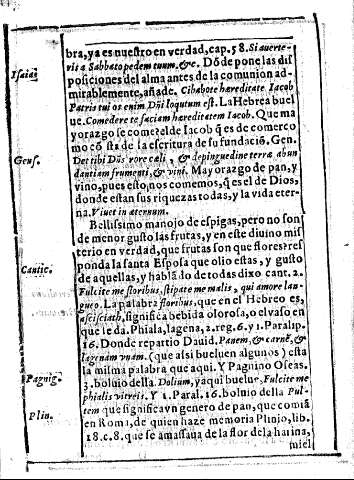 bra, ya es nuestro en verdad, cap. 58. Si auerte-
Isaias
rit a Sabbato pedem tuum, &c. Dõde pone las dis
posiciones del alma antes de la comunion ad-
mirablemente, añade. Cibabo te hæreditate Iacob
Patris tui os enim Dñi loqutum est. La Hebrea buel
ue. Comedere te faciam hæreditatem Iacob. Que ma
yorazgo se come? el de Iacob q̃ es de comercio
Genes.
mo cõsta de la escritura de su fundaciõ. Gen.
Det tibi Dñs rore cæli, & de pinguedine terræ abun
dantiam frumenti, & vini. Mayorazgo de pan, y
vino, pues esto, nos comemos, q̃ es el de Dios,
donde estan sus riquezas todas, y la vida eter-
na. Viuet in æternum.
Bellissimo manojo de espigas, pero no son
de menor gusto las frutas, y en este diuino mis
terio en verdad, que frutas son que flores? res
Cantic.
ponda la santa Esposa que olio estas, y gusto
de aquellas, y hablãdo de todas dixo cant. 2.
Fulcite me floribus, stipate me malis, qui amore lan-
gueo. La palabra floribus, que en el Hebreo es,
ascisciath, significa bebida olorosa, o el vaso en
que se da. Phiala, lagena, 2. reg. 6. y 1. Paralip.
16. Donde repartio Dauid. Panem, & carnẽ, &
lagenam vnam. (que assi bueluen algunos) esta
la misma palabra que aqui. Y Pagnino Oseas.
Pagnig.
3. boluio della. Dolium, y aqui buelue, Fulcite me
phialis vitreis. Y 1. Paral. 16. boluio della Pul-
Plin.
tem que significa vn genero de pan, que comiã
en Roma, de quien haze memoria Plinio, lib.
18. c. 8. que se amassaua de la flor de la harina,
miel